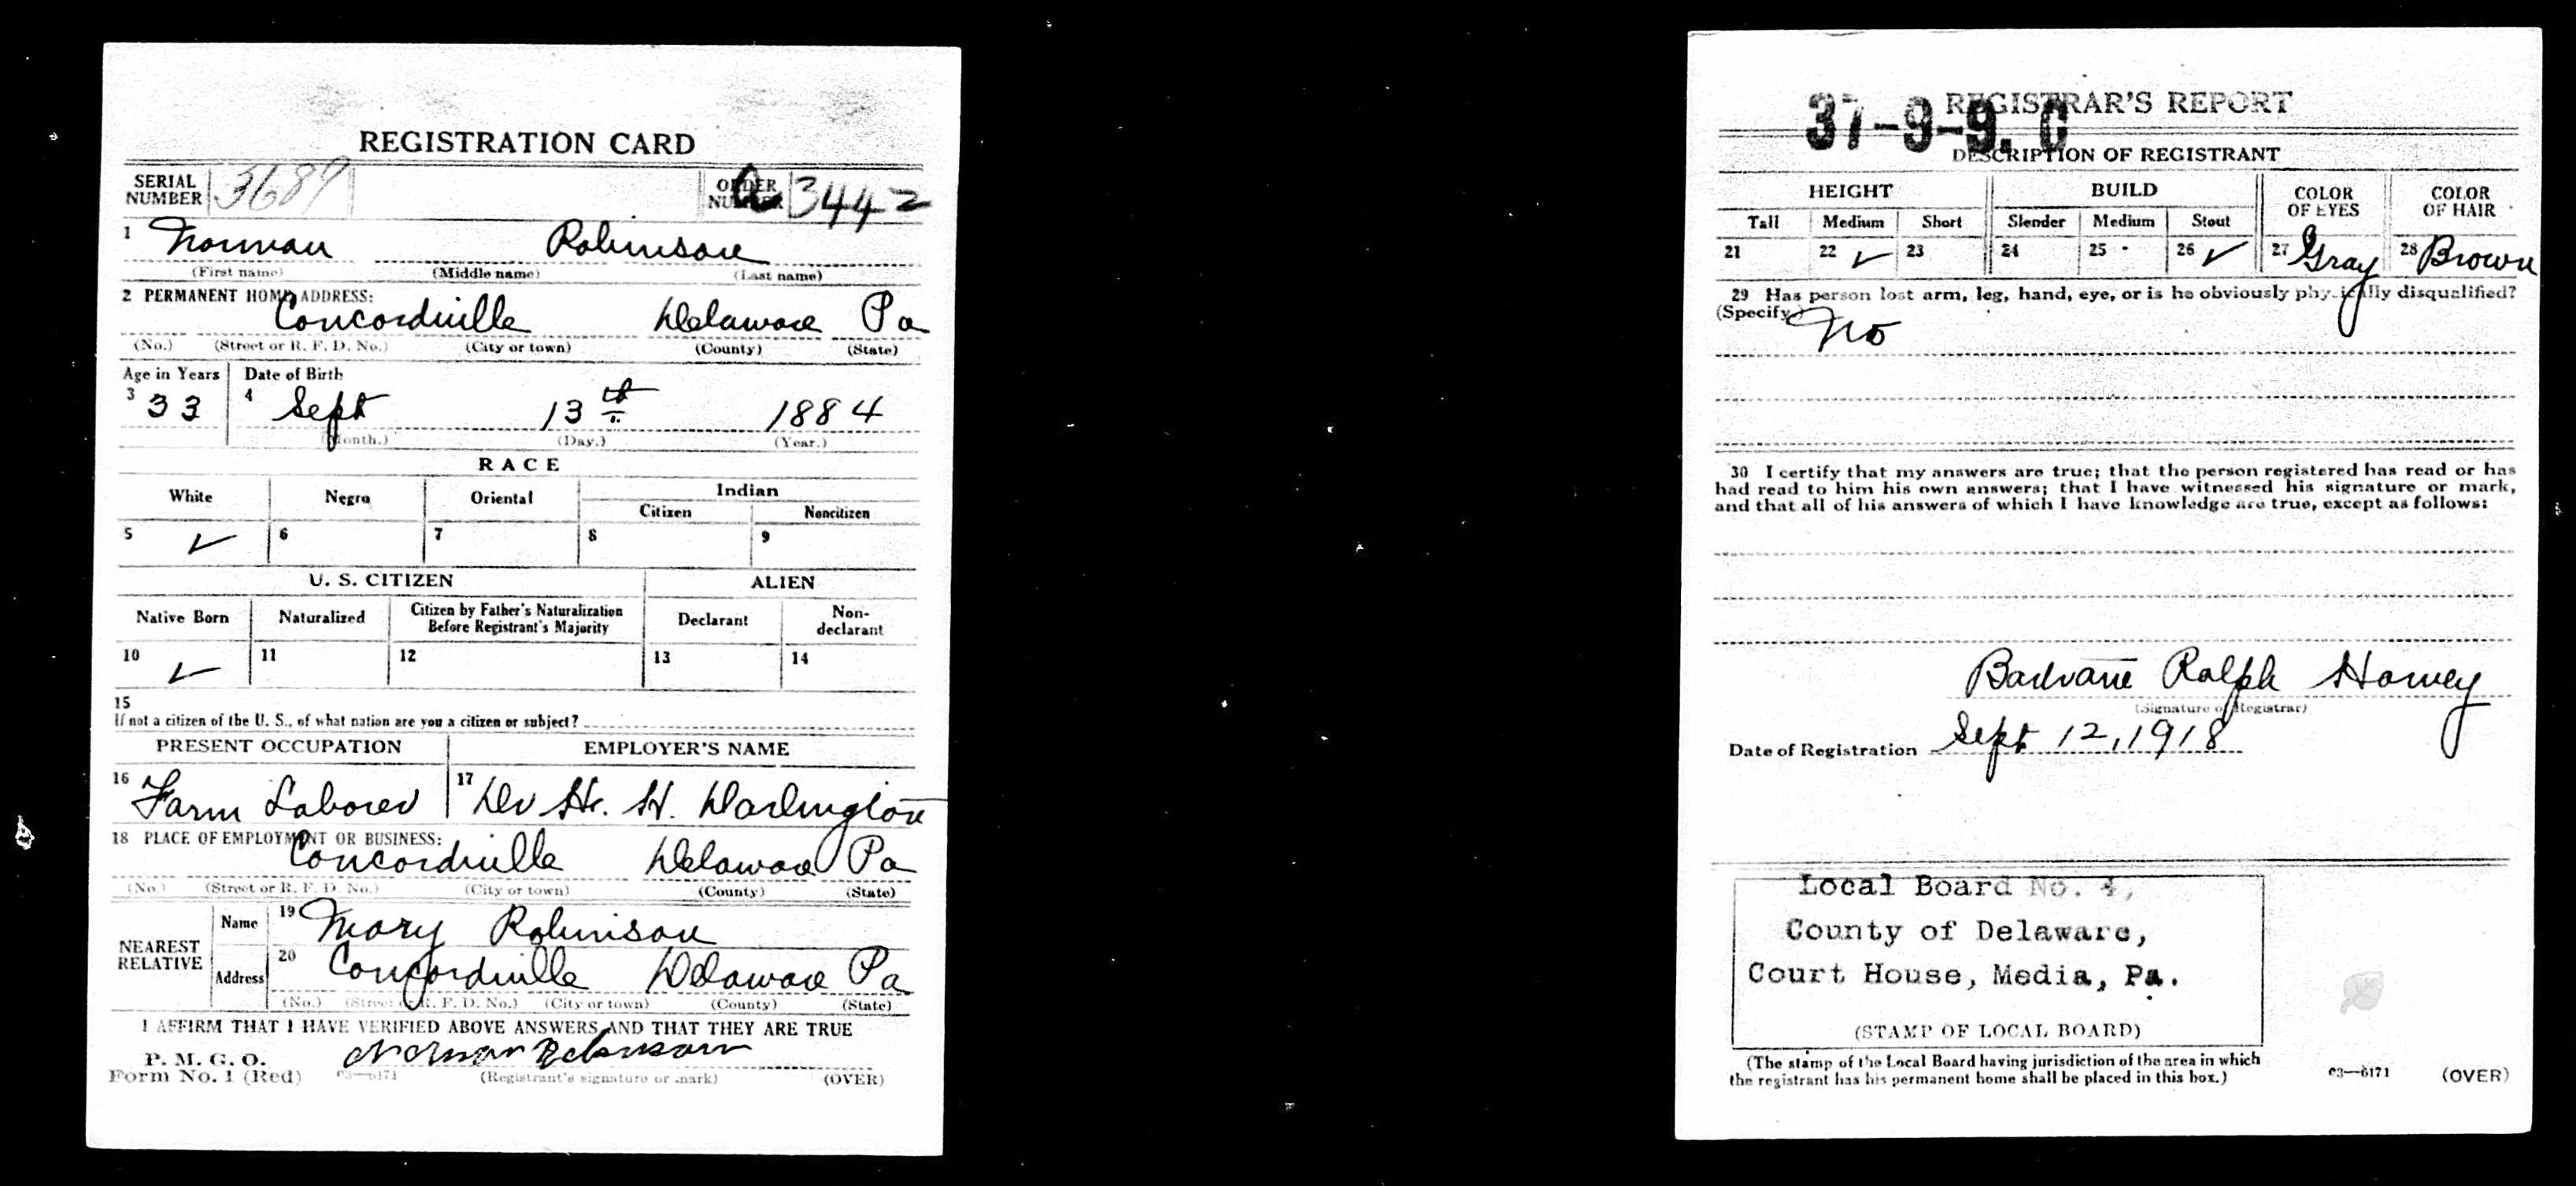 REGISTRATION CARD
SERIAL NUMBER 3689 ORDER NUMBER A 3442
1 Norman Robinson
(First name) (Middle name) (Last name)
2 PERMANENT HOME ADDRESS:
Concordville Delaware Pa
(No.) (Street or R. F. D. No.) (City or town) (County) (State)
Age in Years Date of Birth
3 33 4 Sept 13th 1884
(Month.) (Day.) (Year.)
RACE
White Negro Oriental Indian
Citizen Noncitizen
5 ✓ 6 7 8 9
U. S. CITIZEN ALIEN
Native Born Naturalized Citizen by Father's Naturalization Before Registrant's Majority Declarant Non-declarant
10 ✓ 11 12 13 14
15
If not a citizen of the U. S., of what nation are you a citizen or subject?
PRESENT OCCUPATION EMPLOYER'S NAME
16 Farm Laborer 17 Dr H. Darlington
18 PLACE OF EMPLOYMENT OR BUSINESS:
Concordville Delaware Pa
(No.) (Street or R. F. D. No.) (City or town) (County) (State)
NEAREST RELATIVE
Name 19 Mary Robinson
Address 20 Concordville Delaware Pa
(No.) (Street or R. F. D. No.) (City or town) (County) (State)
I AFFIRM THAT I HAVE VERIFIED ABOVE ANSWERS AND THAT THEY ARE TRUE
P. M. G. O.
Form No. 1 (Red) 03—6171 Norman Robinson
(Registrant's signature or mark) (OVER)
REGISTRAR'S REPORT
37-9-9. C
DESCRIPTION OF REGISTRANT
HEIGHT BUILD COLOR OF EYES COLOR OF HAIR
Tall Medium Short Slender Medium Stout
21 22 ✓ 23 24 25 26 ✓ 27 Gray 28 Brown
29 Has person lost arm, leg, hand, eye, or is he obviously physically disqualified?
(Specify.) No
30 I certify that my answers are true; that the person registered has read or has
had read to him his own answers; that I have witnessed his signature or mark,
and that all of his answers of which I have knowledge are true, except as follows:
Ralph Harvey
(Signature of Registrar)
Date of Registration Sept 12, 1918
Local Board No. 4,
County of Delaware,
Court House, Media, Pa.
(STAMP OF LOCAL BOARD)
(The stamp of the Local Board having jurisdiction of the area in which
the registrant has his permanent home shall be placed in this box.)
03—6171 (OVER)